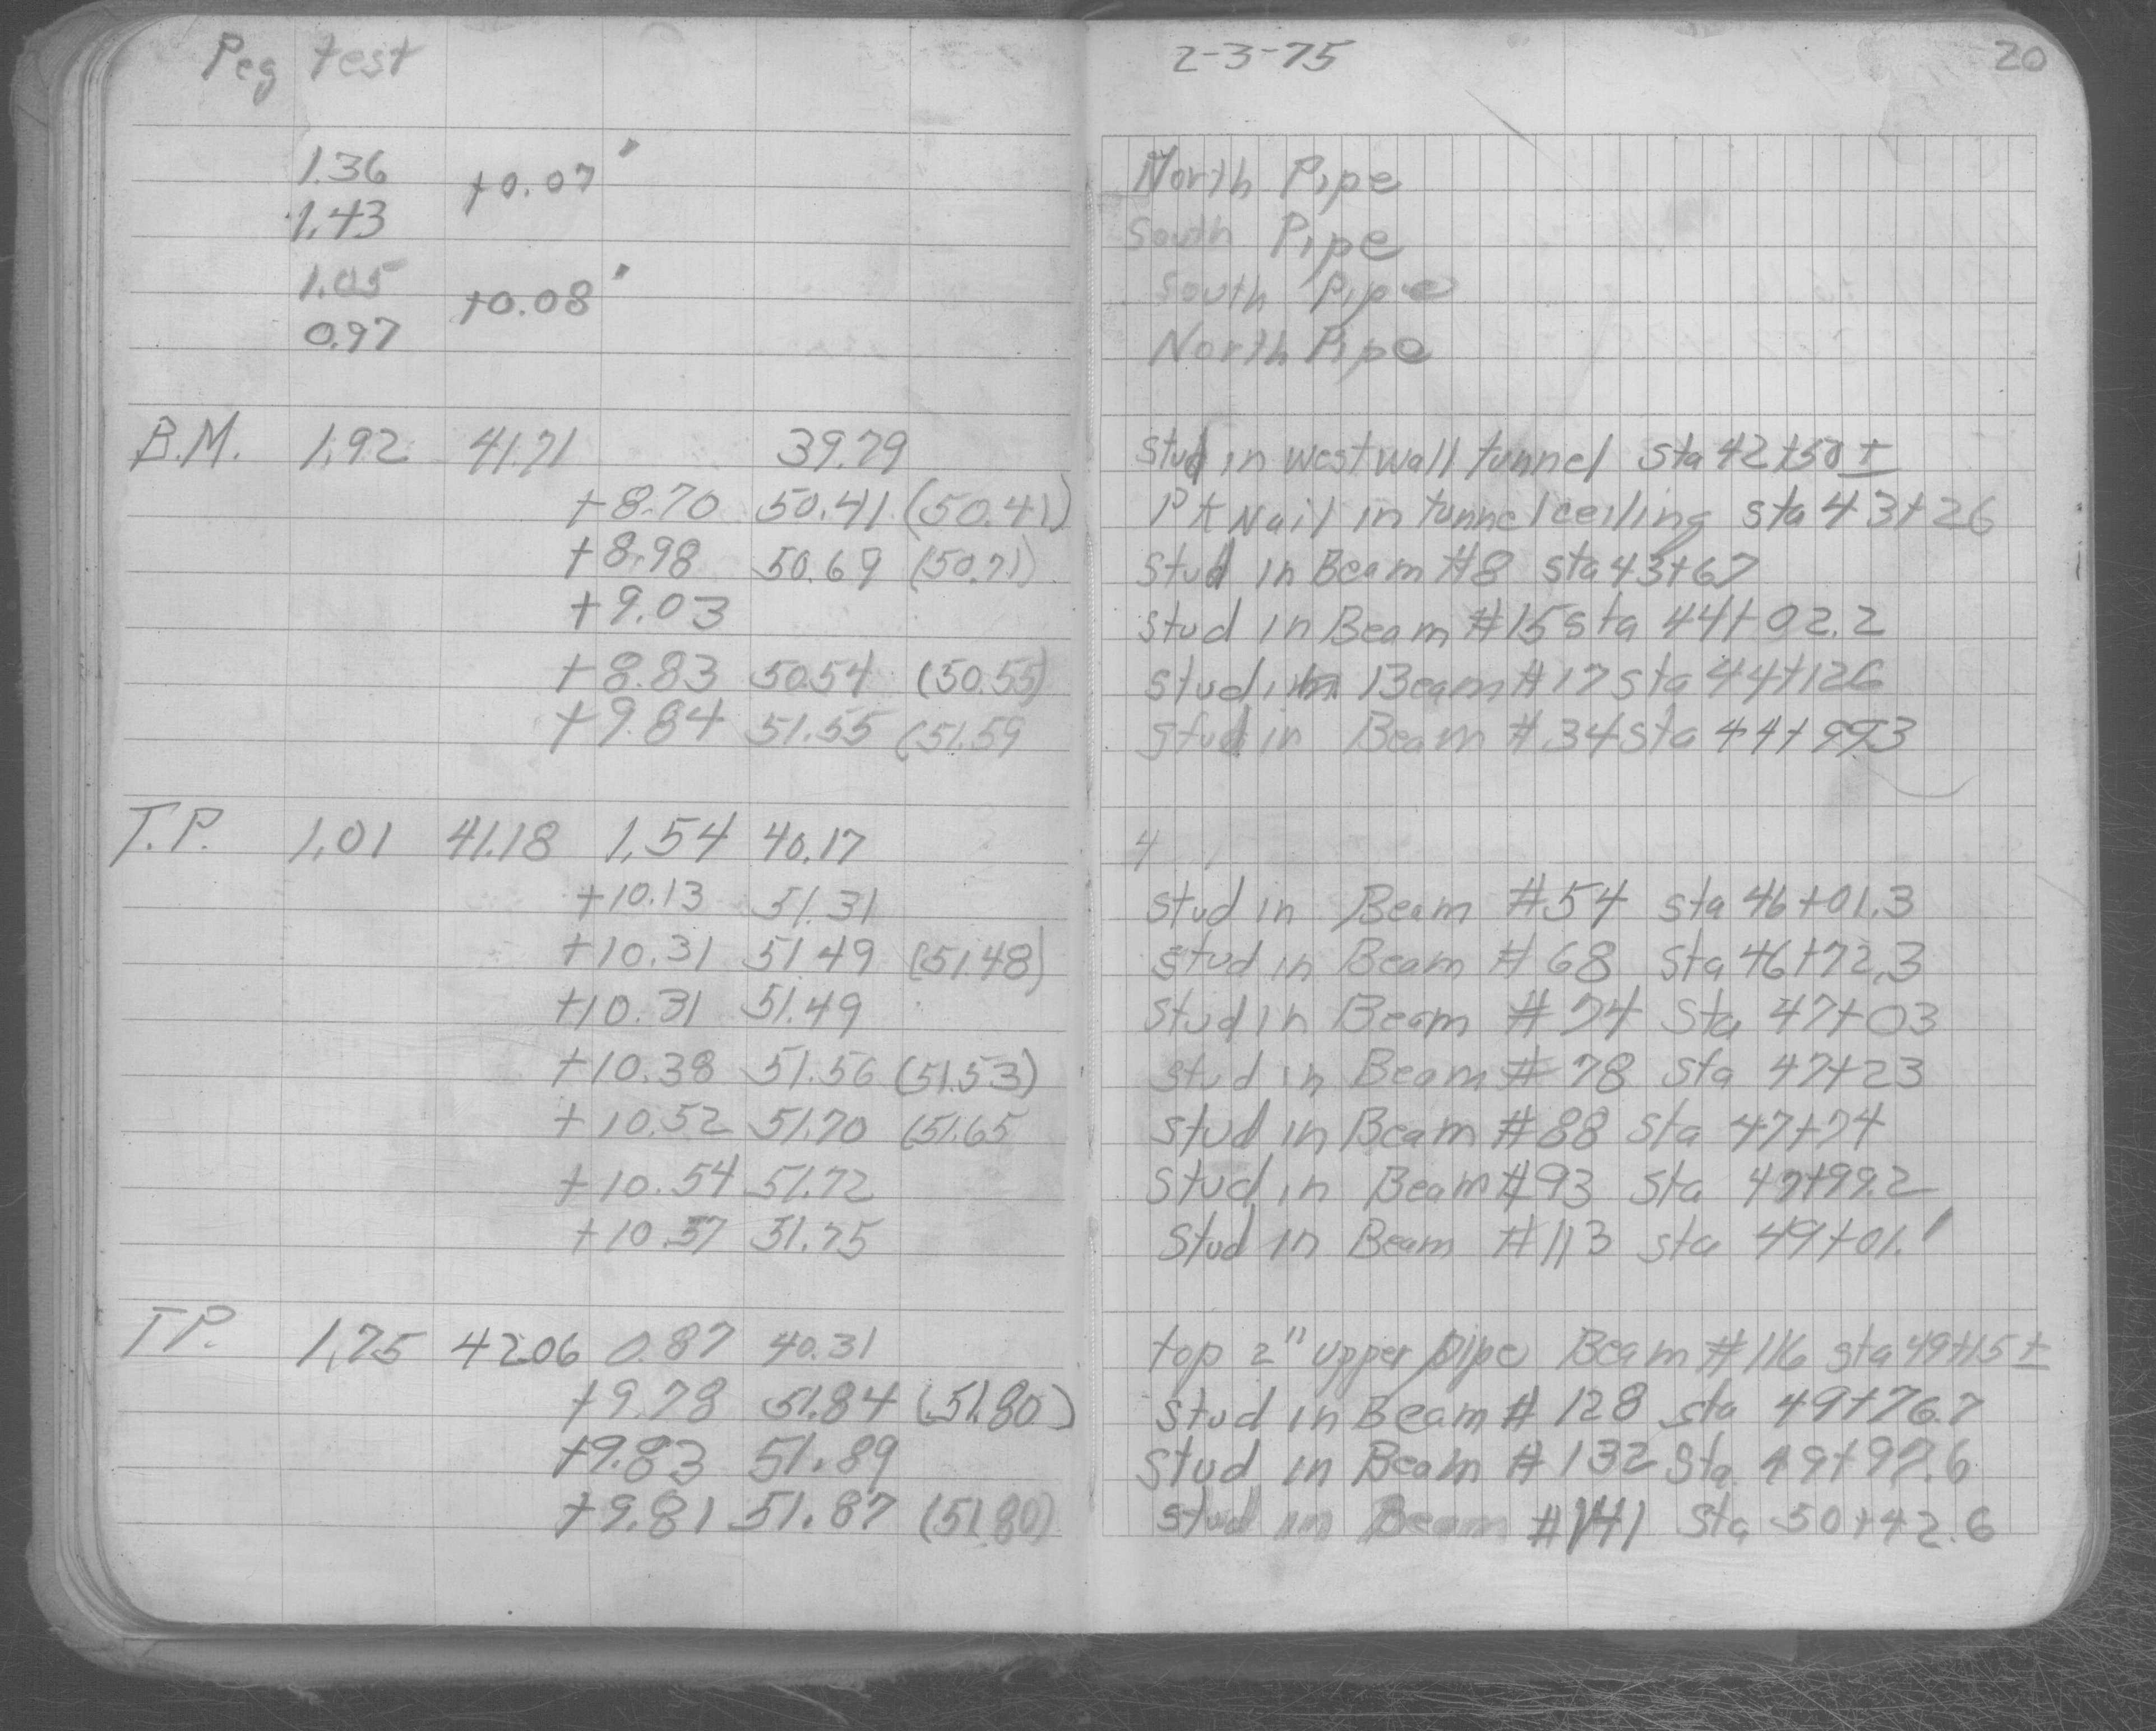 Peg test 2-3-75 20
1.36 +0.07' North Pipe
1.43 South Pipe
1.05 +0.08' South Pipe
0.97 North Pipe
B.M. 1.92 41.71 39.79 stud in west wall tunnel sta 42+50±
+8.70 50.41 (50.41) PK Nail in tunnel ceiling sta 43+26
+8.98 50.69 (50.71) stud in Beam #8 sta 43+67
+9.03 stud in Beam #15 sta 44+02.2
+8.83 50.54 (50.55) stud in Beam #17 sta 44+12.6
+9.84 51.55 (51.59 stud in Beam #34 sta 44+99.3
T.P. 1.01 41.18 1.54 40.17 4
+10.13 51.31 stud in Beam #54 sta 46+01.3
+10.31 51.49 (51.48) stud in Beam #68 sta 46+72.3
+10.31 51.49 stud in Beam #74 sta 47+03
+10.38 51.56 (51.53) stud in Beam #78 sta 47+23
+10.52 51.70 (51.65 stud in Beam #88 sta 47+74
+10.54 51.72 stud in Beam #93 sta 47+99.2
+10.57 51.75 stud in Beam #113 sta 49+01.1
T.P. 1.75 42.06 0.87 40.31 top 2" upper pipe Beam #116 sta 49+15±
+9.78 51.84 (51.80) stud in Beam #128 sta 49+76.7
+9.83 51.89 stud in Beam #132 sta 49+97.6
+9.81 51.87 (51.80) stud in Beam #141 sta 50+42.6